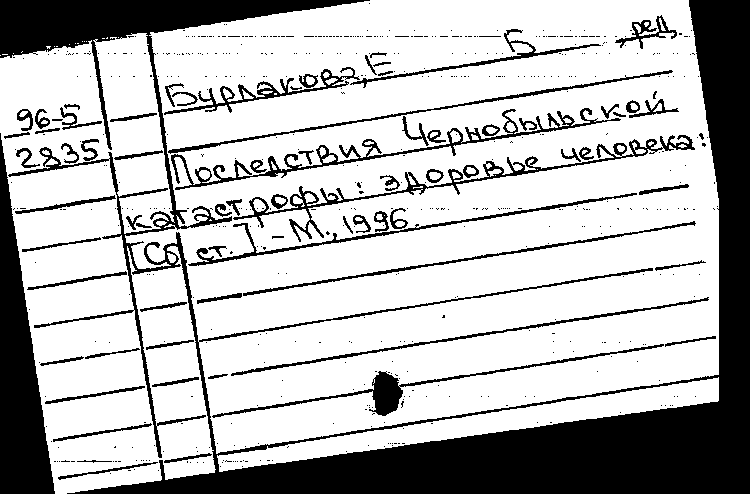 Бурлакова, Е Б , ред.
96-5
2835
Последствия Чернобыльской
катастрофы: здоровье человека:
[Сб. ст.]. - М., 1996.